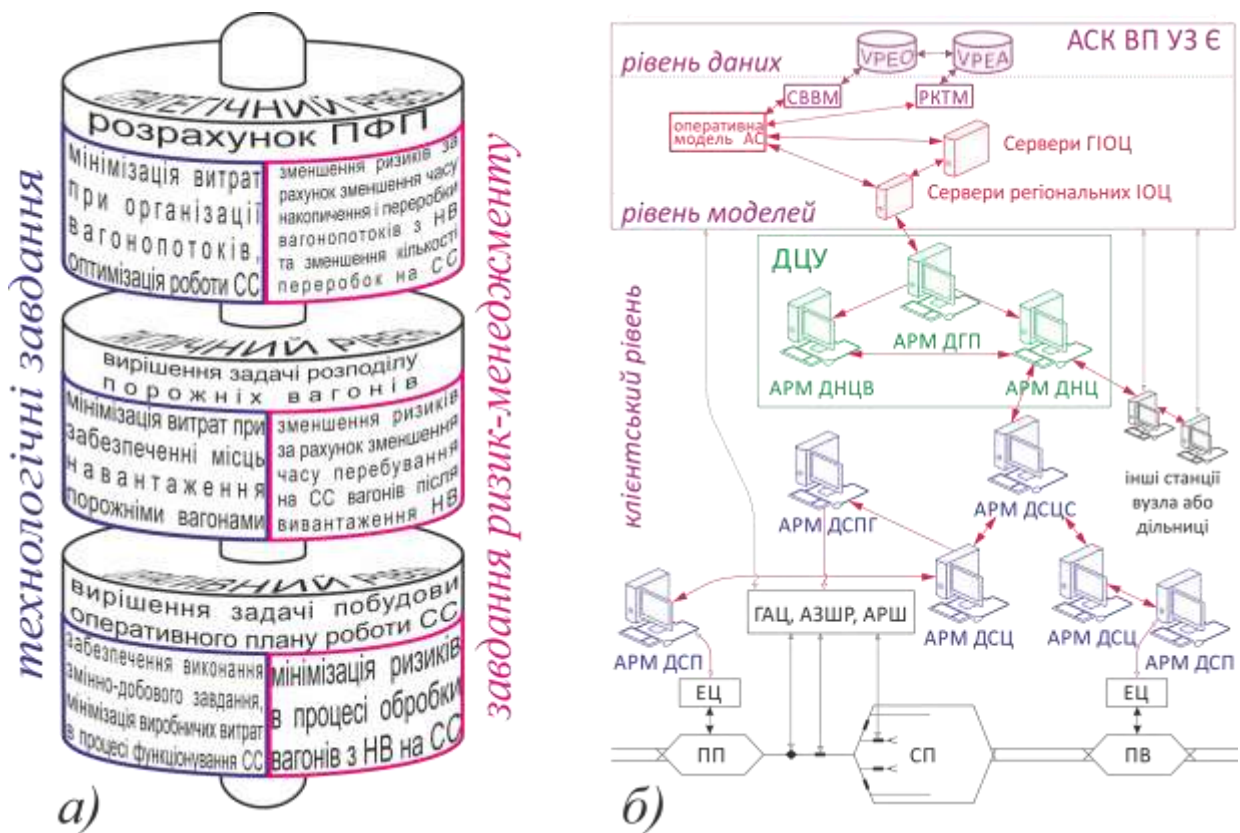 технологічні завдання
СТРАТЕГІЧНИЙ РІВЕНЬ
розрахунок ПФП
мінімізація витрат
при організації
вагонопотоків,
оптимізація роботи СС
зменшення ризиків за
рахунок зменшення часу
накопичення і переробки
вагонопотоків з НВ
та зменшення кількості
переробок на СС
вирішення задачі розподілу
порожніх вагонів
мінімізація витрат при
забезпеченні місць
навантаження
порожніми вагонами
зменшення ризиків
за рахунок зменшення
часу перебування
на СС вагонів після
вивантаження НВ
вирішення задачі побудови
оперативного плану роботи СС
забезпечення виконання
змінно-добового завдання,
мінімізація виробничих витрат
в процесі функціонування СС
мінімізація ризиків
в процесі обробки
вагонів з НВ на СС
завдання ризик-менеджменту
а)
АСК ВП УЗ Є
рівень даних
VPEO
VPEA
СВВМ
РКТМ
оперативна
модель АС
Сервери ГІОЦ
Сервери регіональних ІОЦ
рівень моделей
клієнтський рівень
ДЦУ
АРМ ДГП
АРМ ДНЦВ
АРМ ДНЦ
інші станції
вузла або
дільниці
АРМ ДСПГ
АРМ ДСЦС
ГАЦ, АЗШР, АРШ
АРМ ДСП
АРМ ДСЦ
АРМ ДСЦ
АРМ ДСП
ЕЦ
ЕЦ
ПП
СП
ПВ
б)